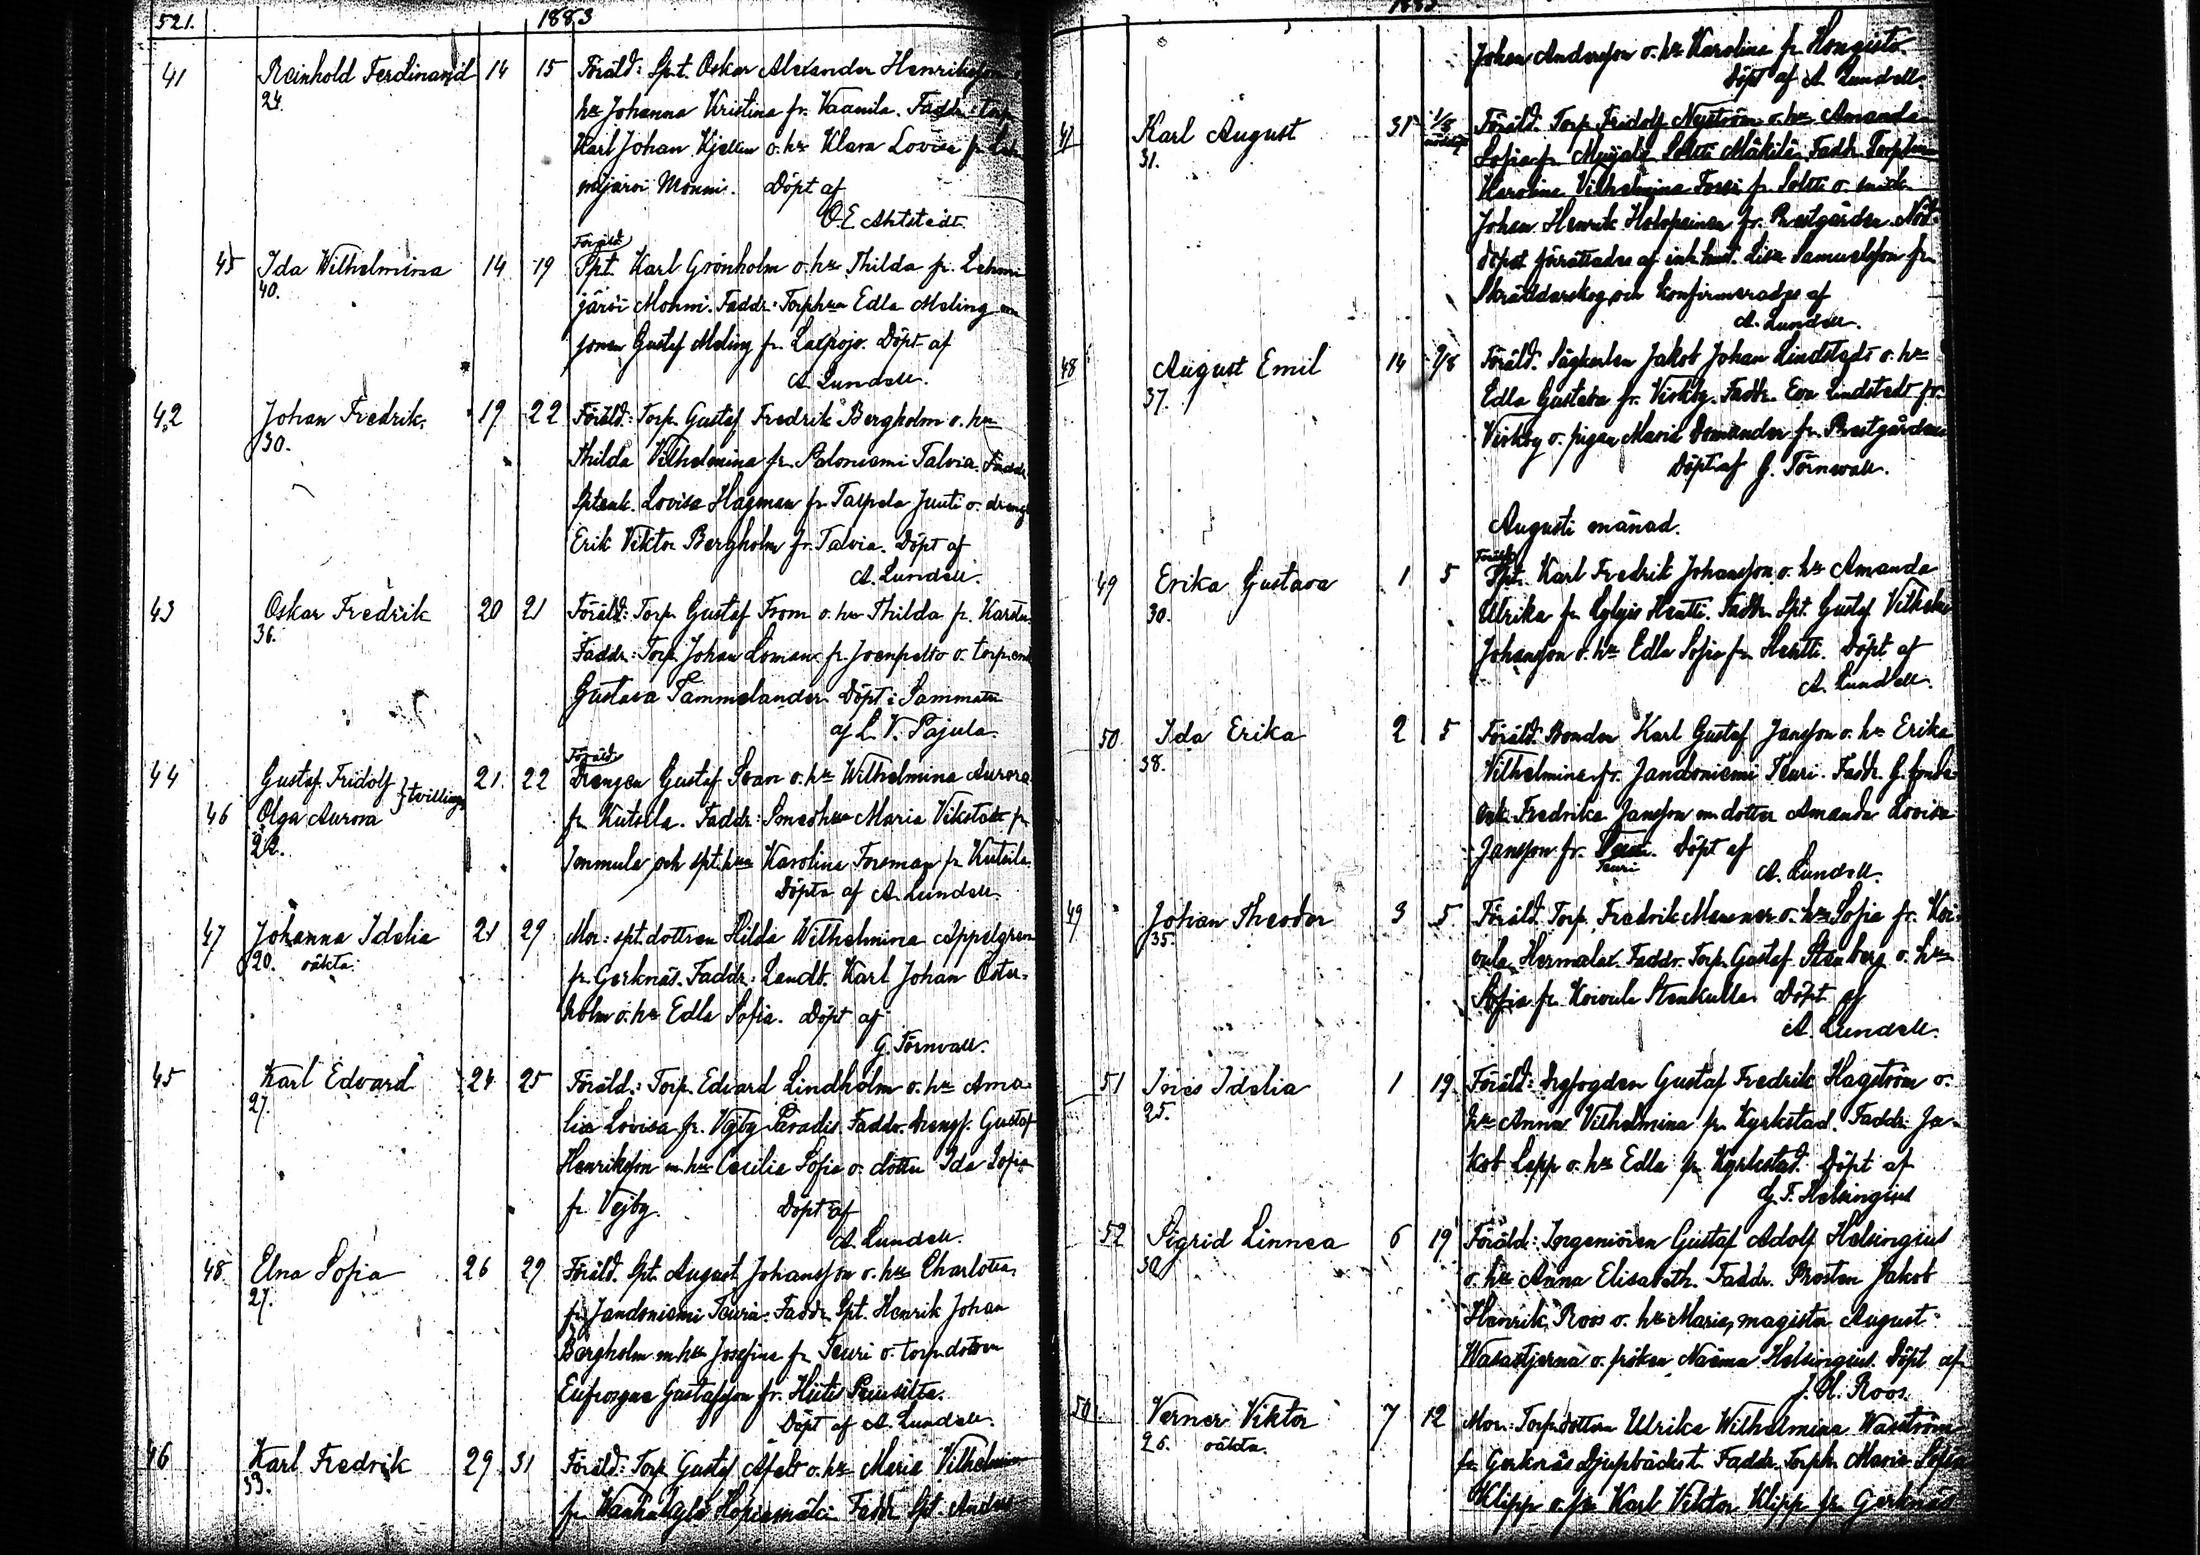 521.
1883
41 Reinhold Ferdinand 14 15 Föräld: Spt. Oskar Alexander Henriksson o.
24. hu Johanna Kristina fr. Vaanila. Faddr: torp.
Karl Johan Kjellen o. hu Klara Lovisa fr Leh
mijärvi Monni. Döpt af
O.E Ahlstedt.
Föräld:
45 Ida Wilhelmina 14 19 Spt. Karl Grönholm o. hu Thilda fr. Lehmi
40. järvi Mohni. Faddr: Torphun Edla Maling m
sonen Gustaf Maling fr. Laxpojo. Döpt af
A. Lundell.
42 Johan Fredrik. 19 22 Föräld: Torp. Gustaf Fredrik Bergholm o. hu
30. Thilda Vilhelmina fr. Paloniemi Talvia. Faddr
Sptenk. Lovisa Hagman fr Tarpela Junti o. dreng
Erik Viktor Bergholm fr. Talvia. Döpt af
A. Lundell.
43 Oskar Fredrik 20 21 Föräld: Torp. Gustaf From o. hu Thilda fr. Karstu
36. Faddr: Torp. Johan Loman fr Joenpelto o. torp.enk
Gustava Sammelander. Döpt i Sammatti
af L. V. Pajula.
Föräld:
44 Gustaf Fridolf } tvillingar 21. 22 Drengen Gustaf Svan o. hu Wilhelmina Aurora
46 Olga Aurora fr. Kutsila. Faddr: Smedhun Maria Vikstedt fr
22. Immula och spt.hun Karolina Forsman fr Kutsila.
Döpta af A. Lundell.
47 Johanna Idalia 21 29 Mor: spt.dottren Hilda Wilhelmina Appelgren
20. oäkta. fr. Gerknäs. Faddr: Landb. Karl Johan Öster-
holm o. hu Edla Sofia. Döpt af
G. Törnvall.
45 Karl Edvard 24 25 Föräld: Torp. Edvard Lindholm o. hu Ama-
27. lia Lovisa fr. Vejby Paradis. Faddr. Drengf. Gustaf
Henriksson m. hu Cecilia Sofia o. dotter Ida Sofia
fr Vejby. Döpt af
A. Lundell.
48 Elna Sofia 26 29 Föräld. Spt. August Johansson o. hu Charlotta
27. fr Jandoniemi Teuri. Faddr. Spt. Henrik Johan
Bergholm m. hu Josefina fr Teuri o. torp.dottren
Eufrosyna Gustafsson fr. Hiitis
Döpt af A. Lundell.
46 Karl Fredrik 29 31 Föräld: Torp. Gustaf Afelt o. hu Maria Vilhelmina
33. fr. Faddr Spt. Anders
1883
Johan Andersson o. hu Karolina fr Hongisto.
Döpt af A. Lundell.
47 Karl August 31 1/8 Föräld. Torp. Fridolf Nyström o. hu Amanda
31. nöddöpt Sofia fr. Solttti Mäkilä. Faddr. Torphun
Karolina Vilhelmina Forss fr Soltti o. smeden
Johan Henrik Holopainen fr. Prestgården. Nöd-
döpet förrättades af inh.hust. Lisa Samuelsson fr
Skräddarskog och konfirmerades af
A. Lundell.
48 August Emil 14 9/8 Föräld. Sågkarlen Jakob Johan Lindstedt o. hu
37. Edla Gustava fr. Virkby. Faddr. Eva Lindstedt fr.
Virkby o. pigan Maria Domander fr. Prestgården
Döpt af G. Törnvall.
Augusti månad.
Föräld:
49 Erika Gustava 1 5 Spt. Karl Fredrik Johansson o. hu Amanda
30. Ulrika fr Lylyis Hentti. Faddr. Spt. Gustaf Vilhelm
Johansson o. hu Edla Sofia fr Hentti. Döpt af
A. Lundell.
50 Ida Erika 2 5 Föräld. Bonden Karl Gustaf Jansson o. hu Erika
38. Vilhelmina fr. Jandoniemi Teuri. Faddr. G. bonde
enk. Fredrika Jansson m dotter Amanda Lovisa
Jansson fr. Teuri. Döpt af
Teuri
A. Lundell.
49 Johan Theodor 3 5 Föräld. Torp. Fredrik o. hu Sofia fr. Koi-
35. vula Hermala. Faddr. Torp. Gustaf Stenberg o. hu
Sofia fr Koivula Stenkulla. Döpt af
A. Lundell.
51 Ines Idalia 1 19 Föräld: Drgfogden Gustaf Fredrik Hagström o.
25. hu Anna Vilhelmina fr Kyrkstad. Faddr. Ja-
kob Lepp o. hu Edla fr Kyrkstad. Döpt af
G. F. Helsingius
52 Sigrid Linnea 6 19 Föräld: Ingeniören Gustaf Adolf Helsingius
30 o. hu Anna Elisabeth. Faddr. Prosten Jakob
Henrik Roos o. hu Maria, magister August
Wasastjerna o. fröken Naëma Helsingius. Döpt af
J. H. Roos.
50 Verner Viktor 7 12 Mor: Torp.dottren Ulrika Wilhelmina Waström
26. oäkta. fr Gerknäs Djupbäckst. Faddr. Torph. Maria Sofia
Klipp o. Karl Viktor Klipp fr Gerknäs